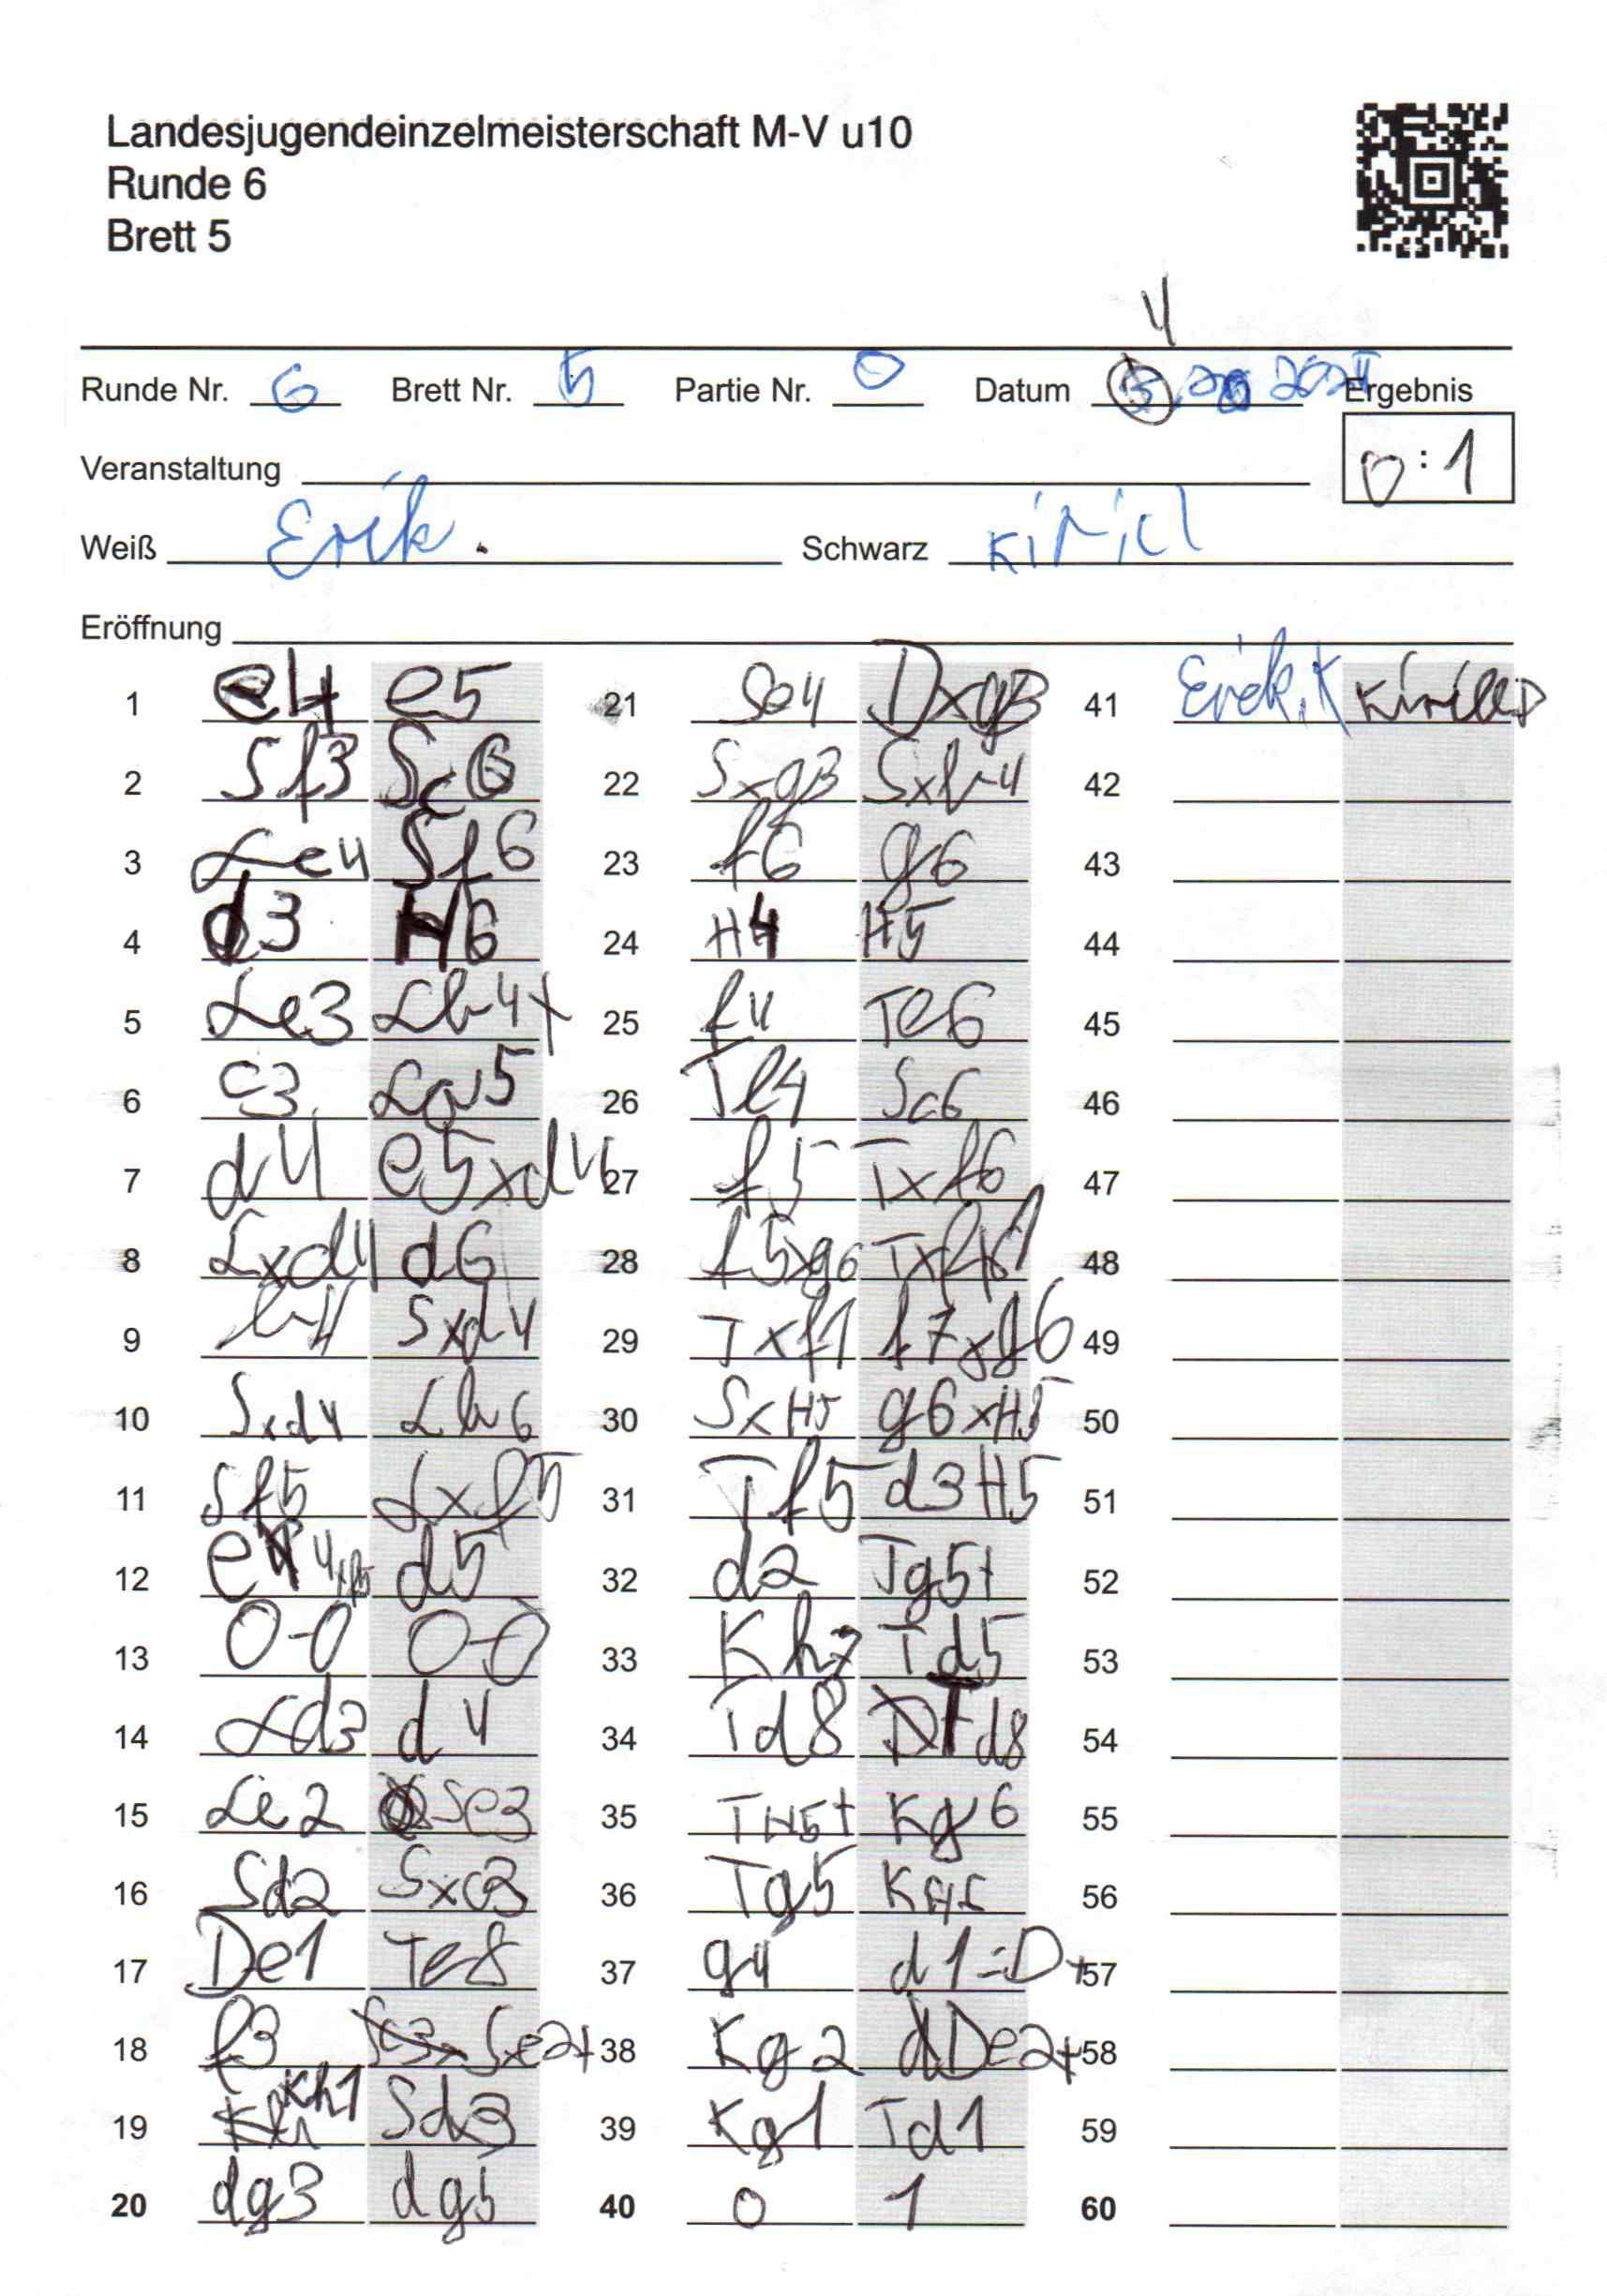 Landesjugendeinzelmeisterschaft M-V u10
Runde 6
Brett 5
4
Runde Nr. 6 Brett Nr. 5 Partie Nr. 0 Datum Ergebnis
Veranstaltung 0:1
Weiß Erik. Schwarz Kiricl
Eröffnung
1 e4 e5 21 Se4 Dxg3 41 Erik.K Kirill.D
2 Sf3 Sc6 22 Sxg3 Sxb4 42
3 Lc4 Sf6 23 f6 g6 43
4 d3 H6 24 H4 H5 44
5 Le3 Lb4+ 25 f4 Te6 45
6 c3 La5 26 Tf4 Sc6 46
7 d4 e5xd4 27 f5 Txf6 47
8 Lxd4 d6 28 f5xg6 Txf1 48
9 b4 Sxd4 29 Txf1 f7xg6 49
10 Sxd4 Lb6 30 SxH5 g6xH5 50
11 Sf5 Lxf5 31 Tf5 d3 H5 51
12 e4xf5 d5 32 d2 Tg5+ 52
13 0-0 0-0 33 Kh2 Td5 53
14 Ld3 d4 34 Td8 Td8 54
15 Le2 Se3 35 TH5+ Kg6 55
16 Sd2 Sxc3 36 Tg5 56
17 De1 Te8 37 g4 d1=D+ 57
18 f3 Sxe2+ 38 Kg2 De2+ 58
19 Kh1 Sd3 39 Kg1 Td1 59
20 dg3 dg5 40 0 1 60